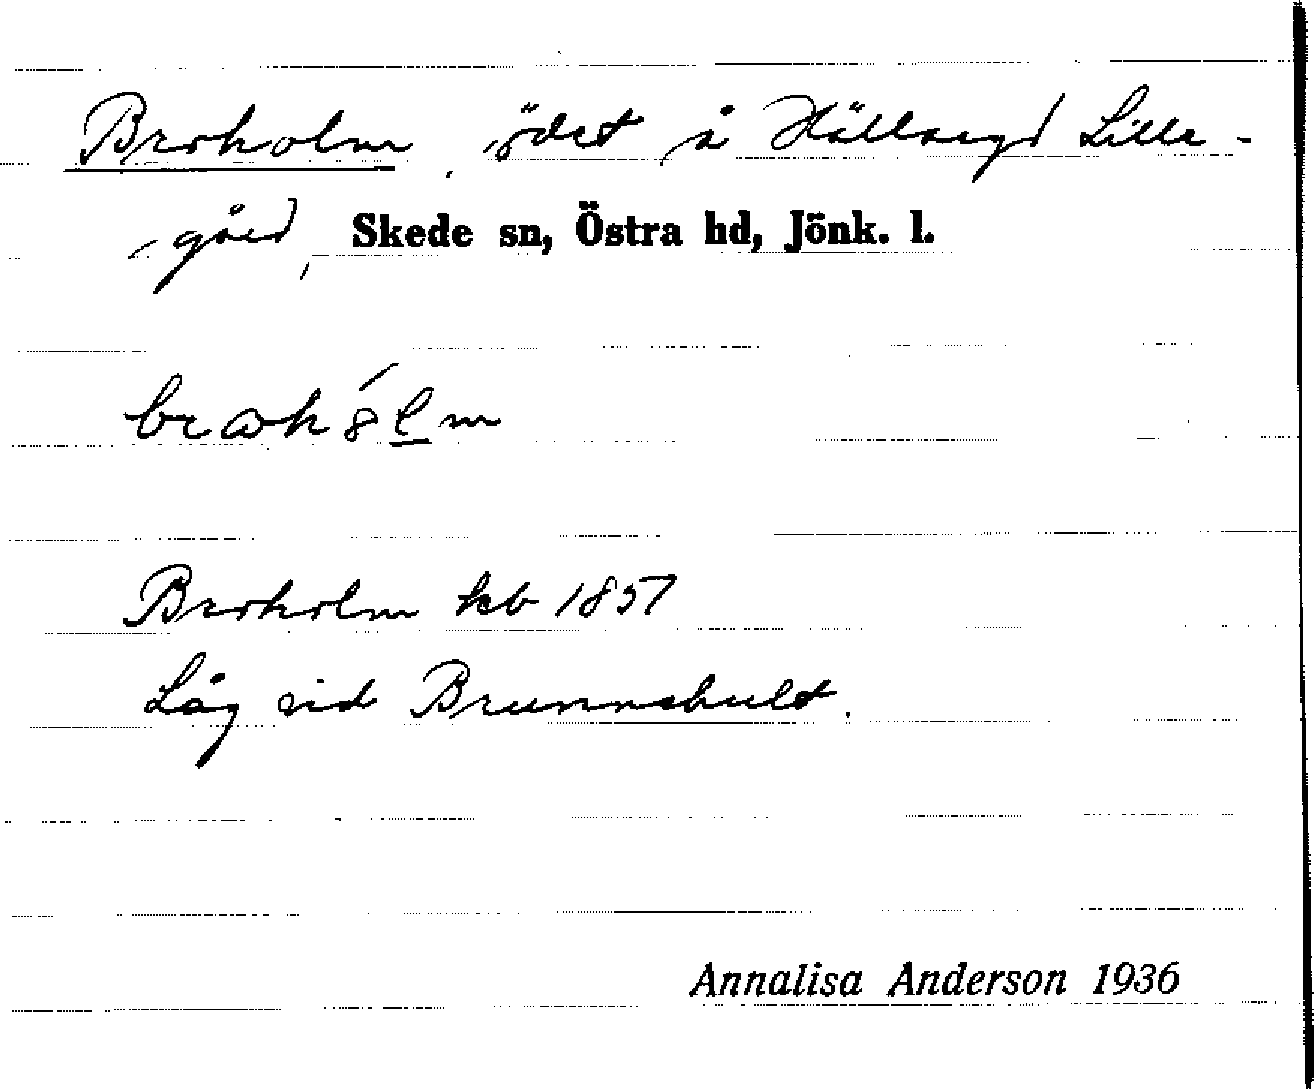 Broholm, ödet å Hällaryd Lille-
gård, Skede sn, Östra hd, Jönk. l.
Broholm kb 1857
Låg vid Brunnshult.
Annalisa Anderson 1936